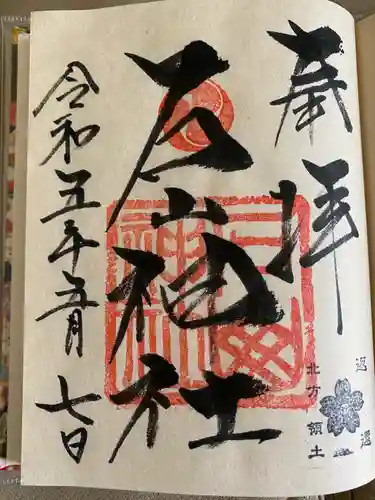 奉拝
石山神社
令和五年五月七日
返還
北方領土